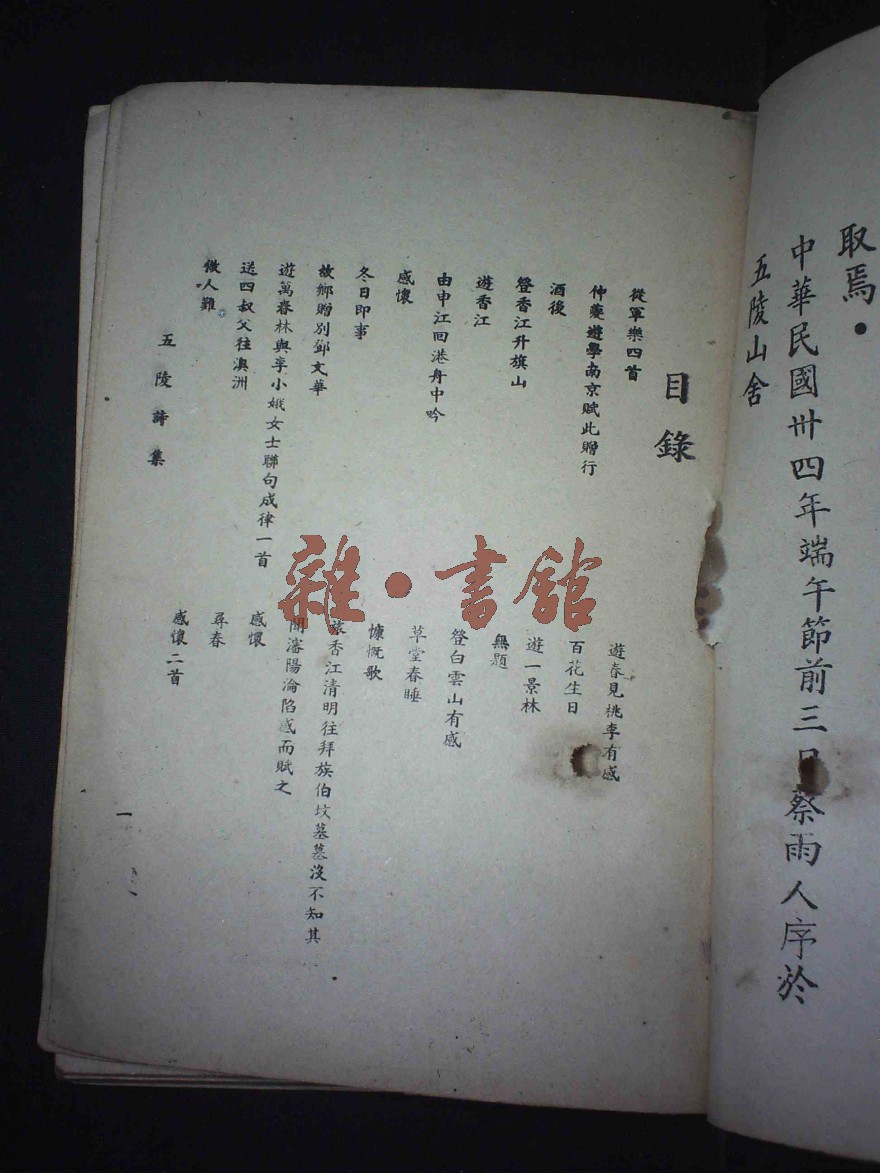 取焉．
中華民國卅四年端午節前三日蔡雨人序於
五陵山舍
目錄
從軍樂四首
仲夔遊學南京賦此贈行
酒後
登香江升旗山
遊香江
由申江回港舟中吟
感懷
冬日即事
故鄉贈別鄧文華
遊萬春林與李小娥女士聯句成律一首
送四叔父往澳洲
做人難
遊春見桃李有感
百花生日
遊一景林
無題
登白雲山有感
草堂春睡
慷慨歌
旅香江清明往拜族伯坟墓墓沒不知其
聞瀋陽淪陷感而賦之
感懷
尋春
感懷二首
五陵詩集
一
雜・書館